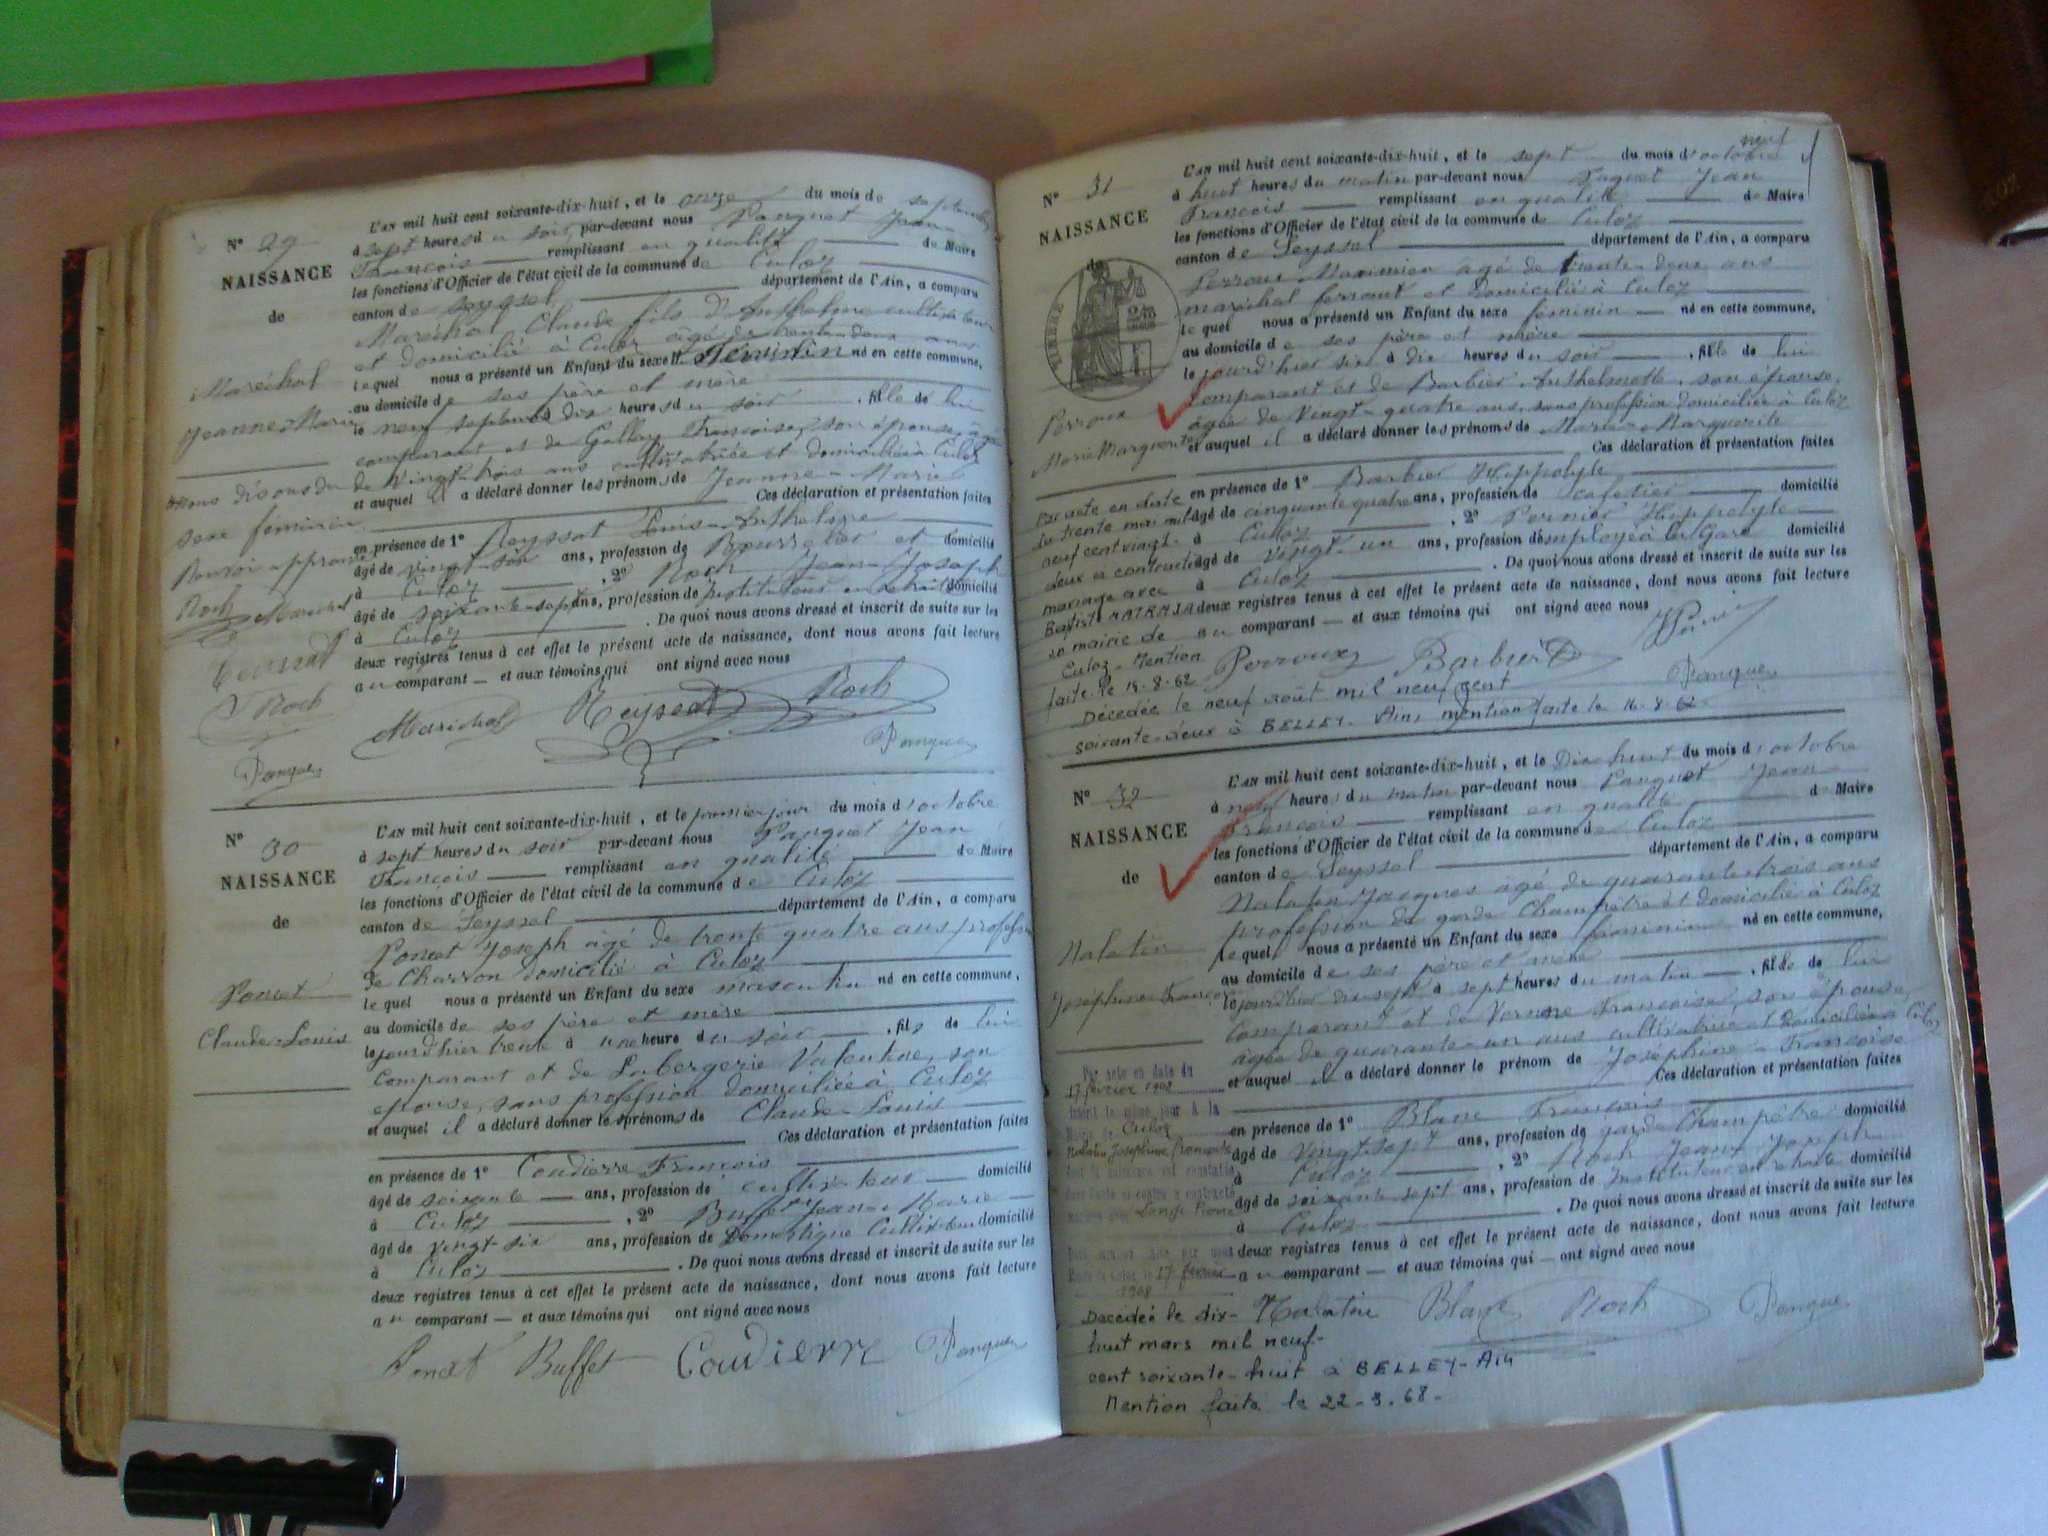 N° 29
NAISSANCE
de
Maréchal
Jeanne-Marie
Nous disons du
sexe féminin
Roch Maréchal
Reyssat
Roch
Panquet
L'AN mil huit cent soixante-dix-huit, et le onze du mois de septembre
à sept heures du soir, par-devant nous Panquet Jean
François remplissant en qualité de Maire
les fonctions d'Officier de l'état civil de la commune de Culoz
canton de Seyssel département de l'Ain, a comparu
Maréchal Claude fils d'Anthelme cultivateur
et domicilié à Culoz âgé de trente deux ans
lequel nous a présenté un Enfant du sexe féminin né en cette commune,
au domicile de ses père et mère
le neuf septembre à dix heures du soir, fille de lui
comparant et de Gallay Françoise, son épouse,
de vingt-trois ans cultivatrice et domiciliée à Culoz
et auquel il a déclaré donner les prénoms de Jeanne-Marie
Ces déclaration et présentation faites
en présence de 1° Reyssat Louis-Anthelme
âgé de vingt-six ans, profession de Bourrelier et domicilié
à Culoz, 2° Roch Jean-Joseph
âgé de soixante-sept ans, profession de Instituteur en retraite domicilié
à Culoz. De quoi nous avons dressé et inscrit de suite sur les
deux registres tenus à cet effet le présent acte de naissance, dont nous avons fait lecture
au comparant — et aux témoins qui ont signé avec nous
Maréchal Reyssat Roch
Panquet
N° 30
NAISSANCE
de
Poncet
Claude-Louis
L'AN mil huit cent soixante-dix-huit, et le premier jour du mois d'octobre
à sept heures du soir par-devant nous Panquet Jean
François remplissant en qualité de Maire
les fonctions d'Officier de l'état civil de la commune de Culoz
canton de Seyssel département de l'Ain, a comparu
Poncet Joseph âgé de trente quatre ans profession
de Charron domicilié à Culoz
lequel nous a présenté un Enfant du sexe masculin né en cette commune,
au domicile de ses père et mère
le jourd'hier trente à une heure du soir, fils de lui
comparant et de Labergerie Valentine, son
épouse, sans profession domiciliée à Culoz
et auquel il a déclaré donner les prénoms de Claude-Louis
Ces déclaration et présentation faites
en présence de 1° Coudierre François
âgé de soixante ans, profession de cultivateur domicilié
à Culoz, 2° Buffet Jean-Marie
âgé de vingt-six ans, profession de Domestique Cultivateur domicilié
à Culoz. De quoi nous avons dressé et inscrit de suite sur les
deux registres tenus à cet effet le présent acte de naissance, dont nous avons fait lecture
au comparant — et aux témoins qui ont signé avec nous
Poncet Buffet Coudierre Panquet
N° 31
NAISSANCE
de
TIMBRE
Perroux
Marie Marguerite
neuf
L'AN mil huit cent soixante-dix-huit, et le sept du mois d'octobre
à huit heures du matin par-devant nous Panquet Jean
François remplissant en qualité de Maire
les fonctions d'Officier de l'état civil de la commune de Culoz
canton de Seyssel département de l'Ain, a comparu
Perroux Maximien âgé de trente-deux ans
maréchal ferrant et domicilié à Culoz
lequel nous a présenté un Enfant du sexe féminin né en cette commune,
au domicile de ses père et mère
le jourd'hier six à dix heures du soir, fille de lui
comparant et de Barbier Anthelmette, son épouse,
âgée de vingt-quatre ans, sans profession domiciliée à Culoz
et auquel il a déclaré donner les prénoms de Marie-Marguerite
Ces déclaration et présentation faites
en présence de 1° Barbier Hippolyte
âgé de cinquante quatre ans, profession de cafetier domicilié
à Culoz, 2° Pernier Hippolyte
âgé de vingt-un ans, profession d'employé à la Gare domicilié
à Culoz. De quoi nous avons dressé et inscrit de suite sur les
deux registres tenus à cet effet le présent acte de naissance, dont nous avons fait lecture
au comparant — et aux témoins qui ont signé avec nous
Par acte en date
du trente mai mil
neuf cent vingt-
deux a contracté
mariage avec
Baptiste
en mairie de
Culoz. Mention
faite le 14.8.62
Perroux Barbier
Panquet
Décédée le neuf août mil neuf cent
soixante-deux à BELLEY-Ain, mention faite le 14.8.62-
N° 32
NAISSANCE
de
Nalatin
Joséphine Françoise
L'AN mil huit cent soixante-dix-huit, et le Dix huit du mois d'octobre
à neuf heures du matin par-devant nous Panquet Jean
François remplissant en qualité de Maire
les fonctions d'Officier de l'état civil de la commune de Culoz
canton de Seyssel département de l'Ain, a comparu
Nalatin Jacques âgé de quarante-trois ans
profession de garde Champêtre et domicilié à Culoz
lequel nous a présenté un Enfant du sexe féminin né en cette commune,
au domicile de ses père et mère
le jourd'hier dix-sept à sept heures du matin, fille de lui
comparant et de Françoise, son épouse,
âgée de quarante-un ans cultivatrice et domiciliée à Culoz
et auquel il a déclaré donner le prénom de Joséphine-Françoise
Ces déclaration et présentation faites
en présence de 1° Blanc François
âgé de vingt-sept ans, profession de garde Champêtre domicilié
à Culoz, 2° Roch Jean-Joseph
âgé de soixante sept ans, profession de Instituteur en retraite domicilié
à Culoz. De quoi nous avons dressé et inscrit de suite sur les
deux registres tenus à cet effet le présent acte de naissance, dont nous avons fait lecture
au comparant — et aux témoins qui — ont signé avec nous
Par acte en date du
17 février 1908
Culoz
Nalatin Joséphine Françoise
17 février
1908
Nalatin Blanc Roch Panquet
Décédée le dix-
huit mars mil neuf-
cent soixante-huit à BELLEY-Ain
Mention faite le 22-3-68-